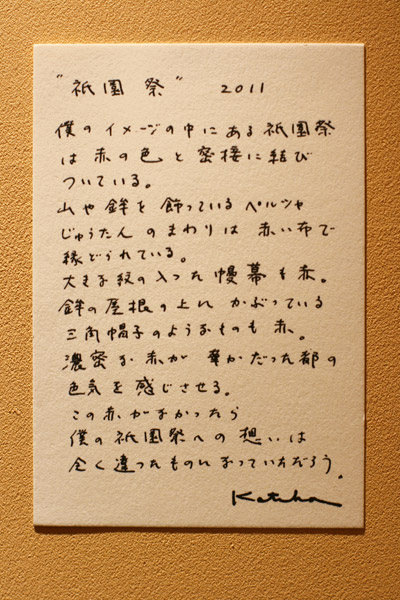 "祇園祭" 2011
僕のイメージの中にある祇園祭
は赤の色と密接に結び
ついている。
山や鉾を飾っているペルシャ
じゅうたんのまわりは赤い布で
縁どられている。
大きな紋の入った幔幕も赤。
鉾の屋根の上にかぶっている
三角帽子のようなものも赤。
濃密な赤が華かだった都の
色気を感じさせる。
この赤がなかったら
僕の祇園祭への想いは
全く違ったものになっていただろう。